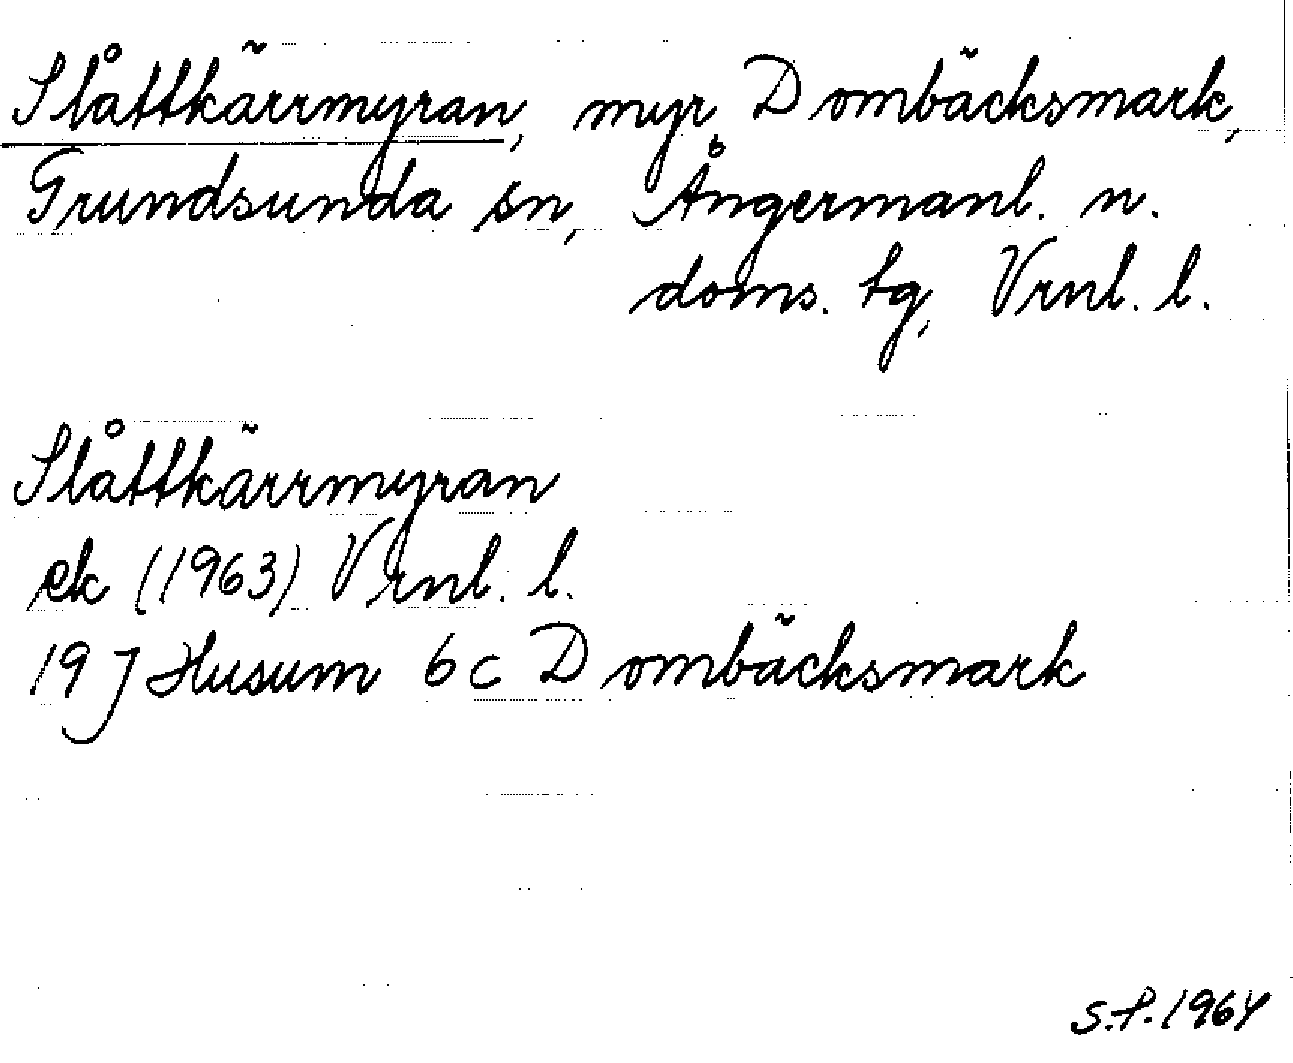 Slåttkärrmyran, myr, Dombäcksmark,
Grundsunda sn, Ångermanl. n.
doms. tg, Vrnl. l.
Slåttkärrmyran
ek (1963) Vrnl. l.
19 J Husum 6 c Dombäcksmark
S.P. 1964